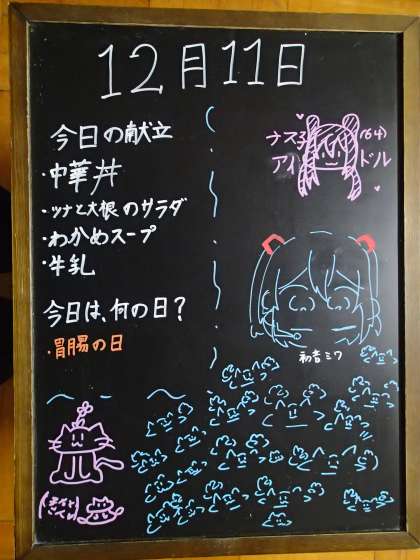 12月11日
今日の献立
・中華丼
・ツナと大根のサラダ
・わかめスープ
・牛乳
今日は、何の日?
・胃腸の日
ナス子(64)
アイドル
初音ミク